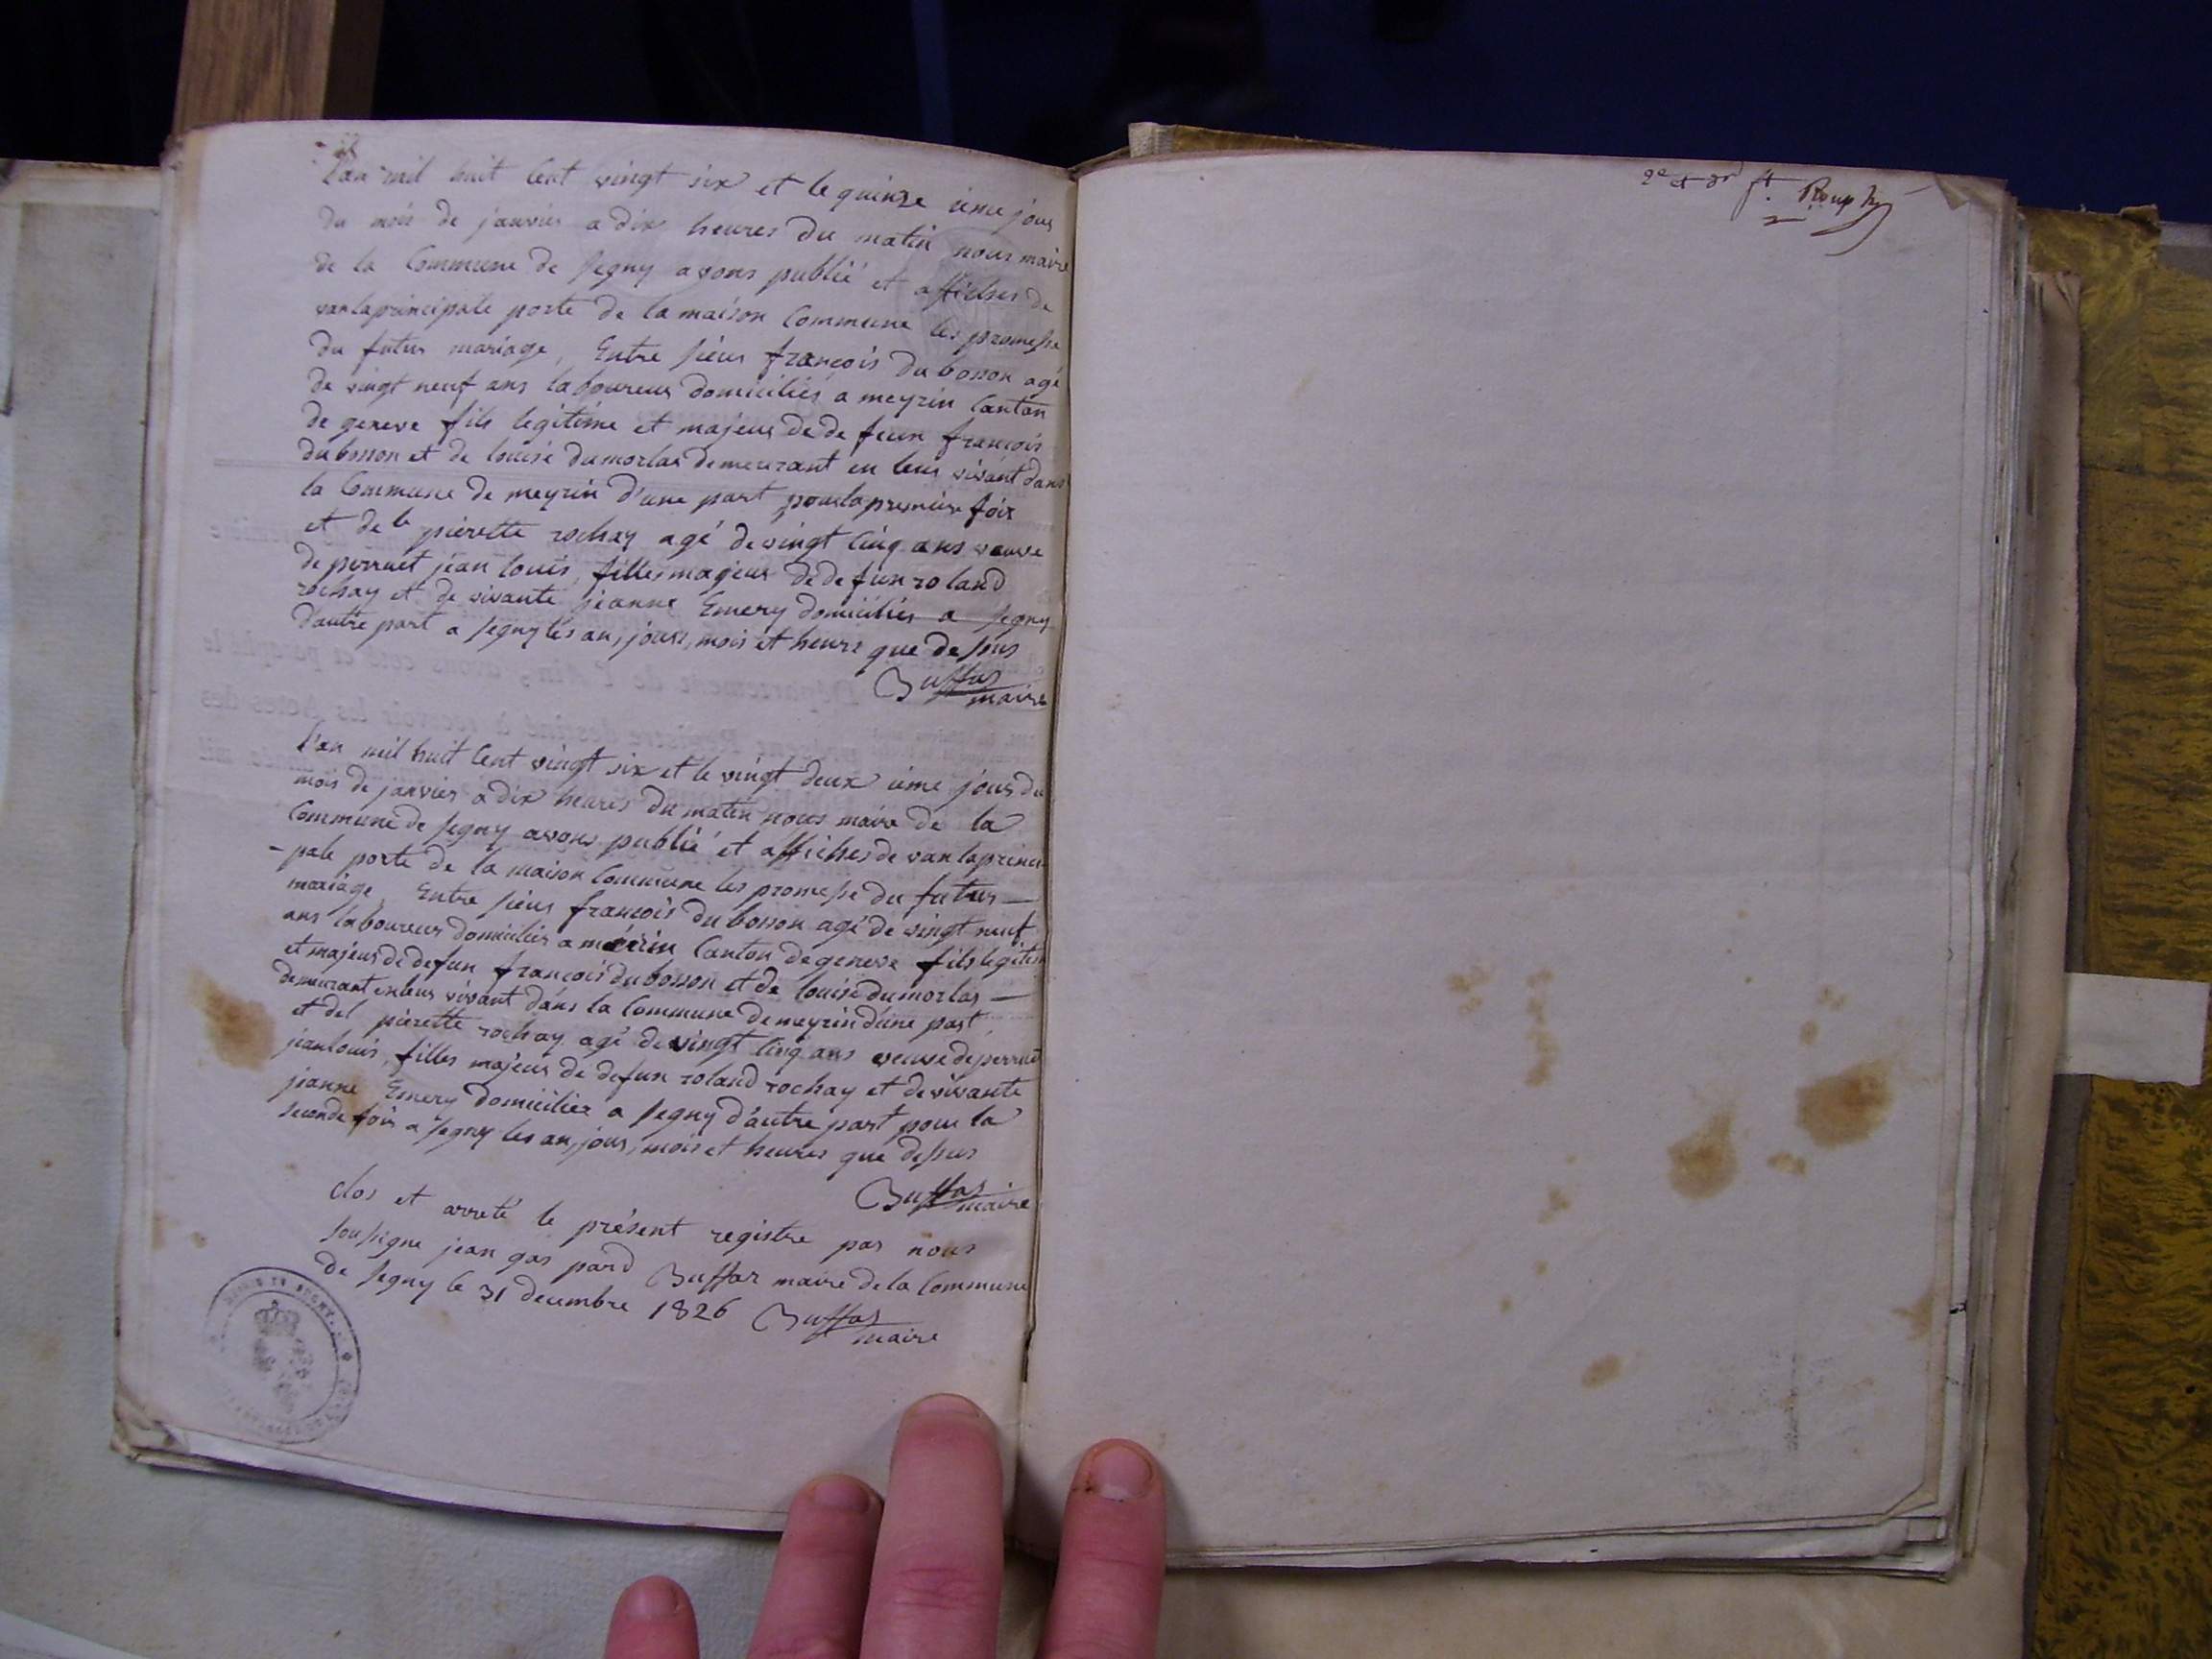 l'an mil huit cent vingt six et le quinze ieme jour
du mois de janvier a dix heures du matin nous maire
de la Commune de Segny avons publié et affiches de
van la principale porte de la maison Commune les promesse
du futur mariage, Entre sieur françois dubosson agé
de vingt neuf ans laboureur domiciliés a meyrin Canton
de geneve fils legitime et majeur de defeun françois
dubosson et de louise dumorlas demeurant en leur vivant dans
la Commune de meyrin d'une part pour la premiere fois
et de le pierette rochay agé de vingt cinq ans veuve
de perruet jean louis, filles majeur de defun roland
rochay et de vivante jeanne Emery domiciliés a Segny
d'autre part a Segny les an, jours, mois et heure que dessus
Buffas
maire
l'an mil huit cent vingt six et le vingt deux ieme jour du
mois de janvier a dix heures du matin nous maire de la
Commune de Segny avons publié et affiches de van la princi
-pale porte de la maison Commune les promesse du futur —
mariage, Entre sieur françois dubosson agé de vingt neuf
ans laboureur domiciliés a meirin Canton de geneve fils legitem
et majeur de defun françois dubosson et de louise dumorlas —
demeurant en leur vivant dans la Commune de meyrin d'une part,
et del pierette rochay agé de vingt cinq ans veuve de perruet
jean louis, filles majeur de defun roland rochay et de vivante
jeanne Emery domiciliez a Segny d'autre part pour la
seconde fois a Segny les an, jour, mois et heures que dessus
Buffas
maire
clos et arreté le présent registre par nous
soussigne jean gas pard Buffas maire de la Commune
de Segny le 31 decembre 1826 Buffas
maire
2e et dr ft.